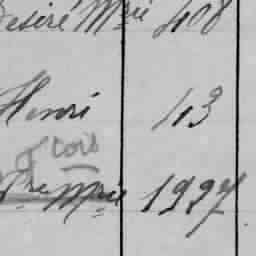 Désiré Mie 408
Henri 113
Cons
Pre Mie 1997